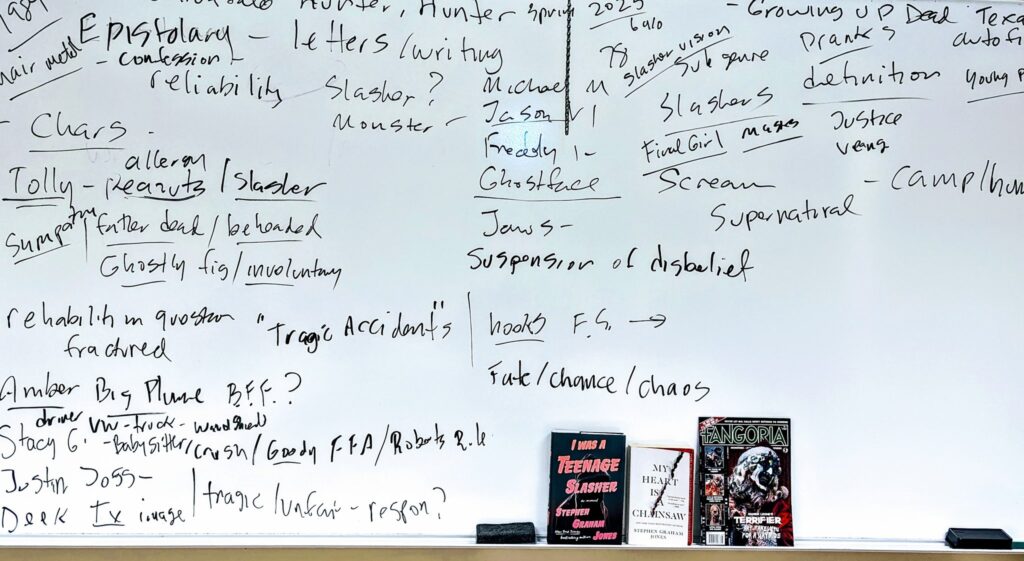 1989
Hunter, Hunter Spring 2025
6210
Epistolary - letters/writing
hair metal
- confession -
reliability
Slasher?
Monster -
Michael M
Jason V
Freddy
Ghostface
Jaws -
Suspension of disbelief
Slasher vision
Slashers
Final Girl masks
Scream
Supernatural
- Growing Up Dead
Pranks
definition
Justice
- camp/hum
Texa
autofi
Young
- Chars -
allergy
Tolly - peanuts / Slasher
father dead / beheaded
Ghostly fig/involuntary
rehabilit in question
fractured
"Tragic Accident"s
hooks F.G. →
Fate/chance/chaos
Amber Big Plume B.F.F.?
driver VW-truck-
Stacy G. - Babysitter/crush/Goody FFA/Robots R.
Justin Joss -
Deek Tx image / tragic/unfair - respon?
I WAS A
TEENAGE
SLASHER
STEPHEN
GRAHAM
JONES
MY
HEART
IS A
CHAINSAW
STEPHEN GRAHAM
JONES
FANGORIA
TERRIFIER